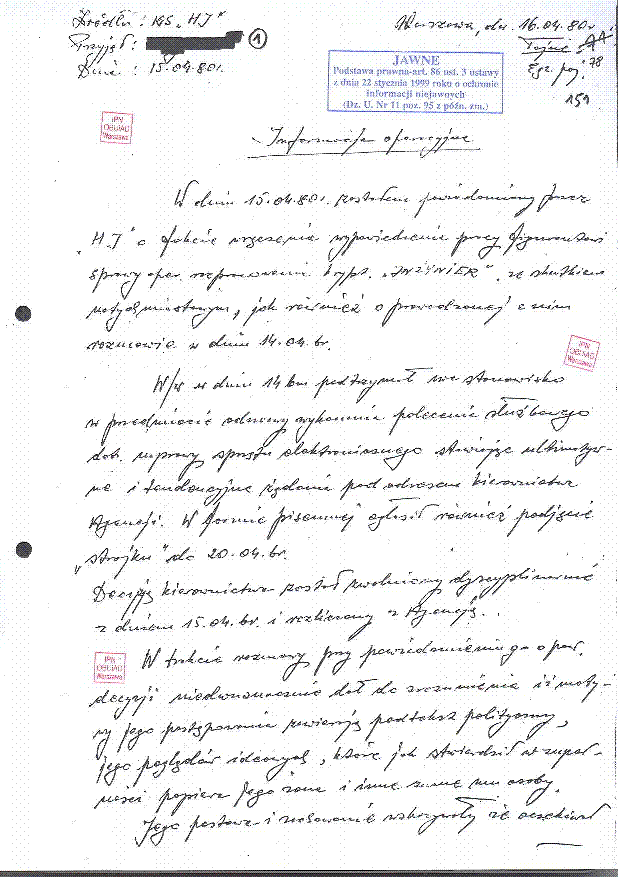 Źródło : KS „HJ"
Przyjął :
Dnia : 15.04.80r.
1
Warszawa, dn. 16.04.80r.
Tajne
Egz. poj.
78
151
JAWNE
Podstawa prawna-art. 86 ust. 3 ustawy
z dnia 22 stycznia 1999 roku o ochronie
informacji niejawnych
(Dz. U. Nr 11 poz. 95 z późn. zm.)
IPN
OBUiAD
Warszawa
Informacja operacyjna
W dniu 15.04.80r. zostałem powiadomiony przez
„HJ" o fakcie wręczenia wypowiedzenia pracy figurantowi
sprawy oper. rozpracowania krypt. „INŻYNIER", ze skutkiem
natychmiastowym, jak również o prowadzonej z nim
rozmowie w dniu 14.04.br.
IPN
OBUiAD
Warszawa
W/w w dniu 14 bm podtrzymał swe stanowisko
w przedmiocie odmowy wykonania polecenia służbowego
dot. naprawy sprzętu elektronicznego stwarzając ultymatyw-
ne i tendencyjne żądania pod adresem kierownictwa
Agencji. W formie pisemnej ogłosił również podjęcie
„strajku" do 20.04.br.
Decyzją kierownictwa został zwolniony dyscyplinarnie
z dniem 15.04.br. i rozliczony z Agencją.
IPN
OBUiAD
Warszawa
W trakcie rozmowy przy powiadomieniu go o pow.
decyzji niedwuznacznie dał do zrozumienia iż moty-
wy jego postępowania zawierają podtekst polityczny,
jego poglądów ideowych, które jak stwierdził w zupeł-
ności popiera jego żona i inne znane mu osoby.
Jego postawa i zachowanie wskazywały że oczekiwał